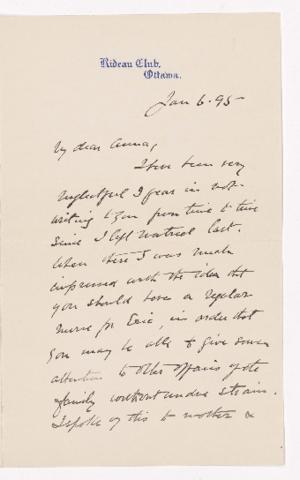 Rideau Club,
Ottawa.
Jan 6. 95
My dear Anna,
I have been very
neglectful I fear in not
writing to you from time to time
since I left Montreal last.
When there I was much
impressed with the idea that
you should have a regular
nurse for Evie, in order that
you may be able to give some
attention to other affairs of the
family without undue strain.
I spoke of this to mother &